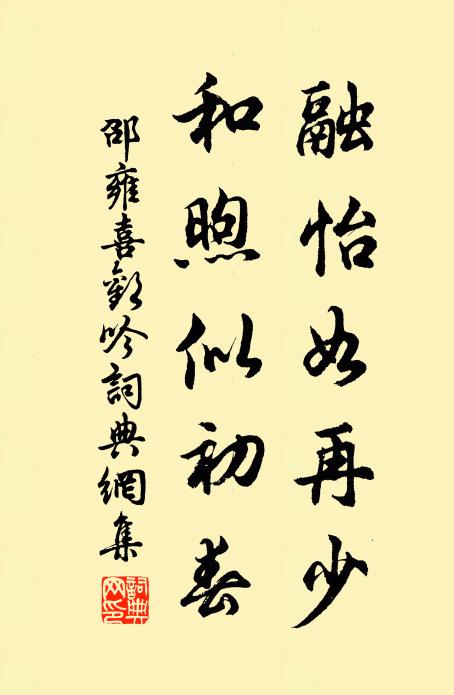 融怡如再少
和煦似初春
邵雍喜歡吟詞典網集
詞典
网印